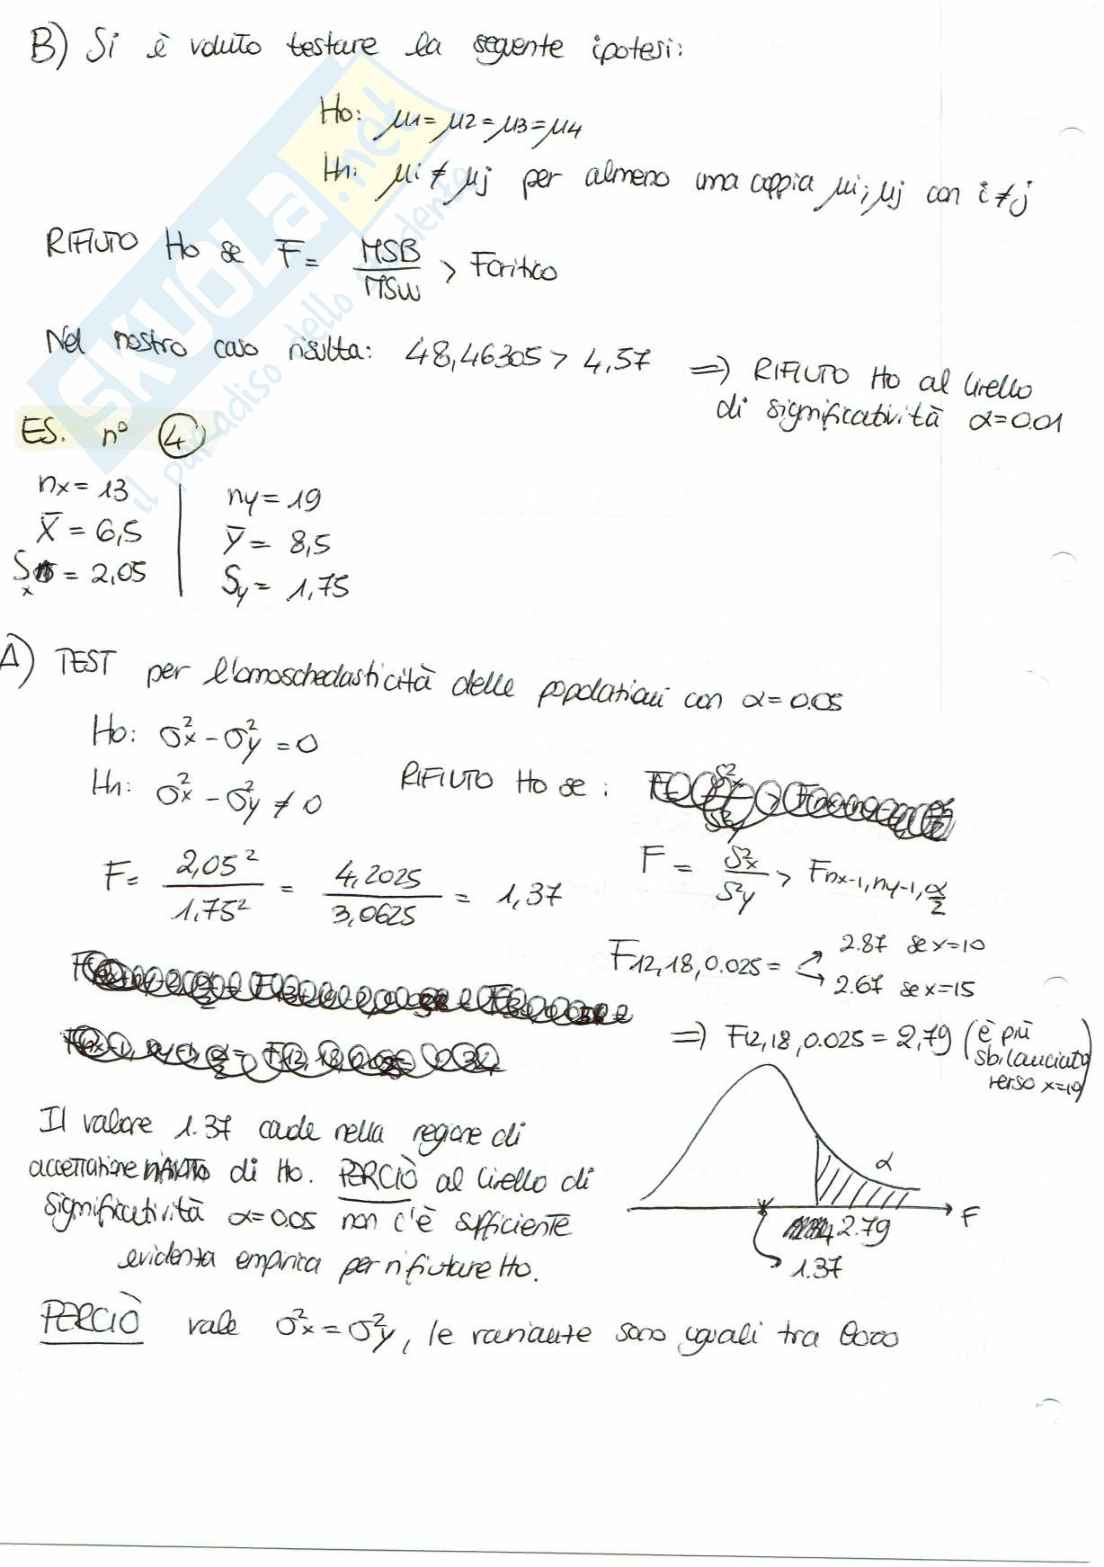 B) Si è voluto testare la seguente ipotesi:
Ho: μ1=μ2=μ3=μ4
H1: μi≠μj per almeno una coppia μi;μj con i≠j
RIFIUTO Ho se F= MSB/MSW > Fcritico
Nel nostro caso risulta: 48,46305 > 4,57 => RIFIUTO Ho al livello
di significatività α=0.01
ES. n° 4
nx=13
X̄=6,5
Sx=2,05
ny=19
Ȳ=8,5
Sy=1,75
A) TEST per l'omoschedasticità delle popolazioni con α=0.05
Ho: σ²x-σ²y=0
H1: σ²x-σ²y≠0
RIFIUTO Ho se:
F= 2,05²/1.75² = 4,2025/3,0625 = 1,37
F = S²x/S²y > Fnx-1,ny-1,α/2
F12,18,0.025= 2.87 se x=10
2.67 se x=15
=> F12,18,0.025=2,79 (è più
sbilanciato
verso x=10)
Il valore 1.37 cade nella regione di
accettazione di Ho. PERCIÒ al livello di
significatività α=0.05 non c'è sufficiente
evidenza empirica per rifiutare Ho.
α
F
2.79
1.37
PERCIÒ vale σ²x=σ²y, le varianze sono uguali tra loro
SKUOLA.net
il paradiso dello studente